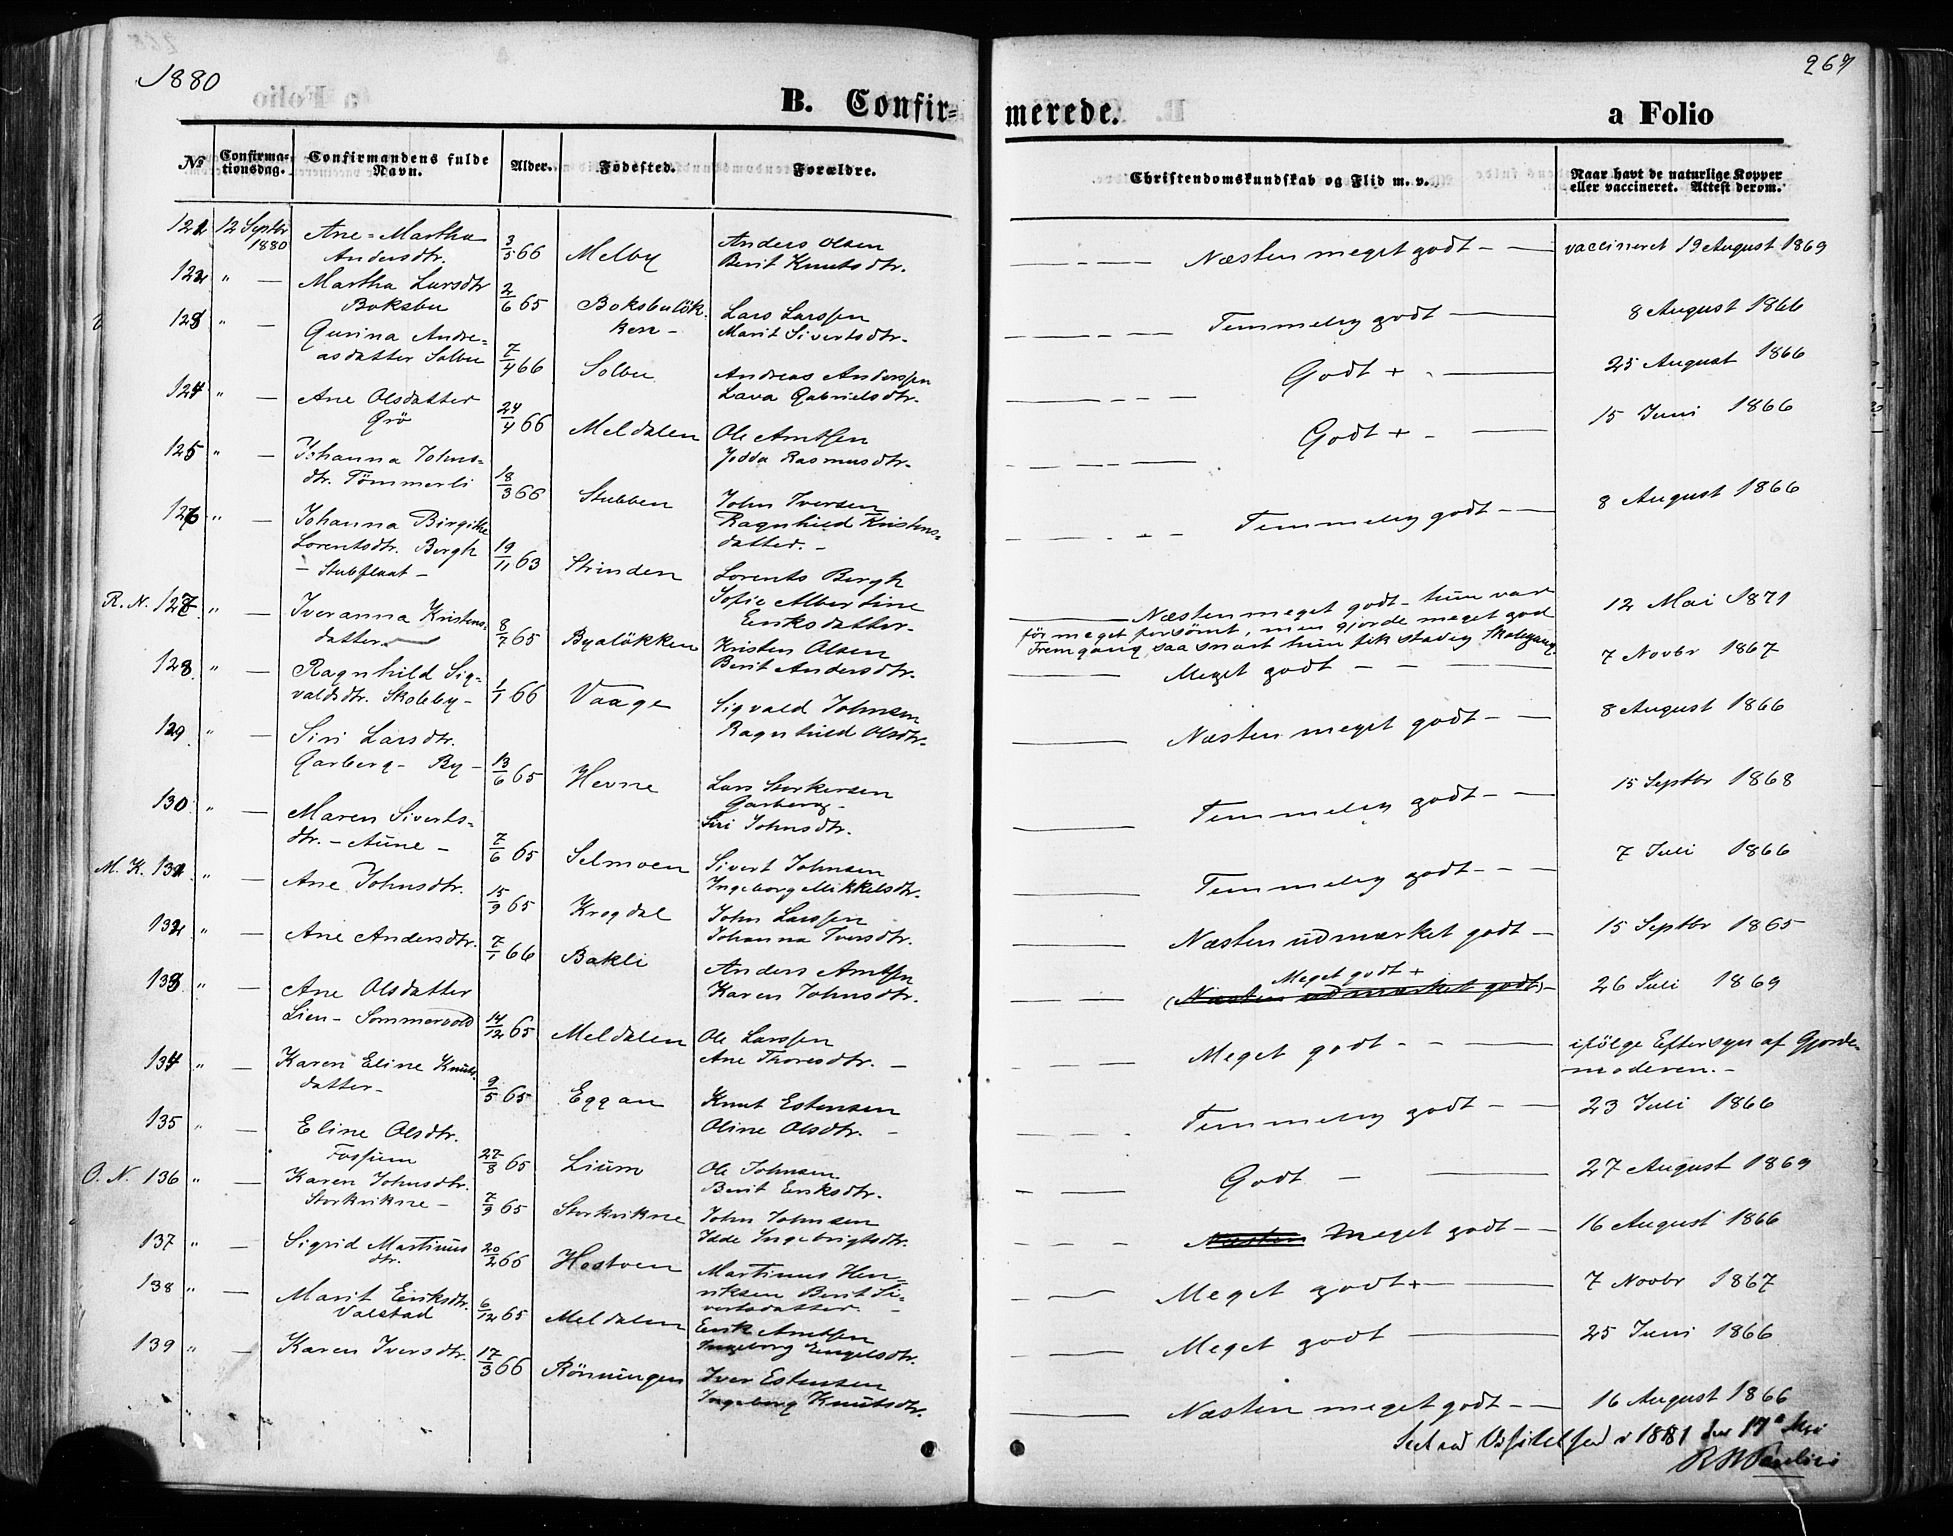 1880
267
B. Confir=
merede.
a Folio
No
Confirma-
tionsdag.
Confirmandens fulde
Navn.
Alder.
Fødested.
Forældre.
Christendomskundskab og Flid m. v.
Naar havt de naturlige Kopper
eller vaccineret. Attest derom.
121 12 Septbr 1880 Ane=Martha
Andersdtr. 3/5 66 Melby Anders Olsen
Berit Knutsdtr. Næsten meget godt - — vaccineret 19 August 1869
122 " — Martha Larsdtr
Boksbu 2/6 65 Boksbulök-
ken - Lars Larssen
Marit Sivertsdtr. Temmelig godt — 8 August 1866
123 " — Gurina Andre-
asdatter Solbu 7/4 66 Solbu Andreas Anderssen
Lava Gabrielsdtr. Godt + - — 25 August 1866
124 " — Ane Olsdatter
Grö 24/4 66 Meldalen Ole Arntsen
Jodda Rasmusdtr. Godt + - — 15 Juni 1866
125 " — Johanna Johns-
dtr. Tömmerli 18/3 66 Stubben John Iversen
Ragnhild Kristens-
datter. - Temmelig godt - — 8 August 1866
126 " — Johanna Birgitte
Lorentsdtr. Bergh
- Stubflaat - 19/11 63 Strinden Lorents Bergh
Sofie Albertine
Eriksdatter. Næsten meget godt - hun var
för meget forsömt, men gjorde meget god
Fremgang, saa snart hun fik stadig Skolegang. 12 Mai 1871
R. N. 127 " — Iveranna Kristens-
datter 8/7 65 Byalökken Kristen Olsen
Berit Andersdtr. Meget godt - - — 7 Novbr 1867
128 " — Ragnhild Sig-
valdsdtr. Skoleby - 1/1 66 Vaage Sigvald Johnsen
Ragnhild Olsdtr. Næsten meget godt - — 8 August 1866
129 " — Siri Larsdtr.
Garberg - By - 13/6 65 Hevne Lars Storkersen
Garberg -
Siri Johnsdtr. Temmelig godt - — 15 Septbr 1868
130 " — Maren Siverts-
dtr. - Aune - 7/6 65 Selmoen Sivert Johnsen
Ingeborg Mikkelsdtr. Temmelig godt - - — 7 Juli 1866
M. K. 131 " — Ane Johnsdtr. 15/9 65 Krogdal John Larssen
Johanna Iversdtr. Næsten udmærket godt — 15 Septbr 1865
132 " — Ane Andersdtr. 7/1 66 Bakli Anders Arntsen
Karen Johnsdtr. Meget godt +
(Næsten udmærket godt) - 26 Juli 1869
133 " — Ane Olsdatter
Lien - Sommervold 14/12 65 Meldalen Ole Larssen
Ane Thoresdtr. — Meget godt - - — ifölge Eftersyn af Gjorde-
moderen. -
134 " — Karen Eline Knuts-
datter - 9/5 65 Eggan Knut Estensen
Oline Olsdtr. — Temmelig godt - — 23 Juli 1866
135 " — Eline Olsdtr.
Fossum 27/8 65 Lium Ole Johnsen
Berit Eriksdtr. Godt - — 27 August 1869
O. N. 136 " — Karen Johnsdtr.
Storkvikne - 7/9 65 Storkvikne John Johnsen
Idde Ingebrigtsdtr. Næsten Meget godt - — 16 August 1866
137 " — Sigrid Martinus
dtr. 20/2 66 Hostoen Martinus Hen-
riksen Berit Si-
vertsdatter. Meget godt + — 7 Novbr 1867
138 " — Marit Eriksdtr.
Valstad 6/12 65 Meldalen Erik Arntsen
Ingeborg Engelsdtr. Meget godt — 25 Juni 1866
139 " — Karen Iversdtr. 17/3 66 Rönningen Iver Estensen
Ingeborg Knutsdtr. Næsten meget godt - — 16 August 1866
Seet ved Visitatsen i 1881 den 17 Mai